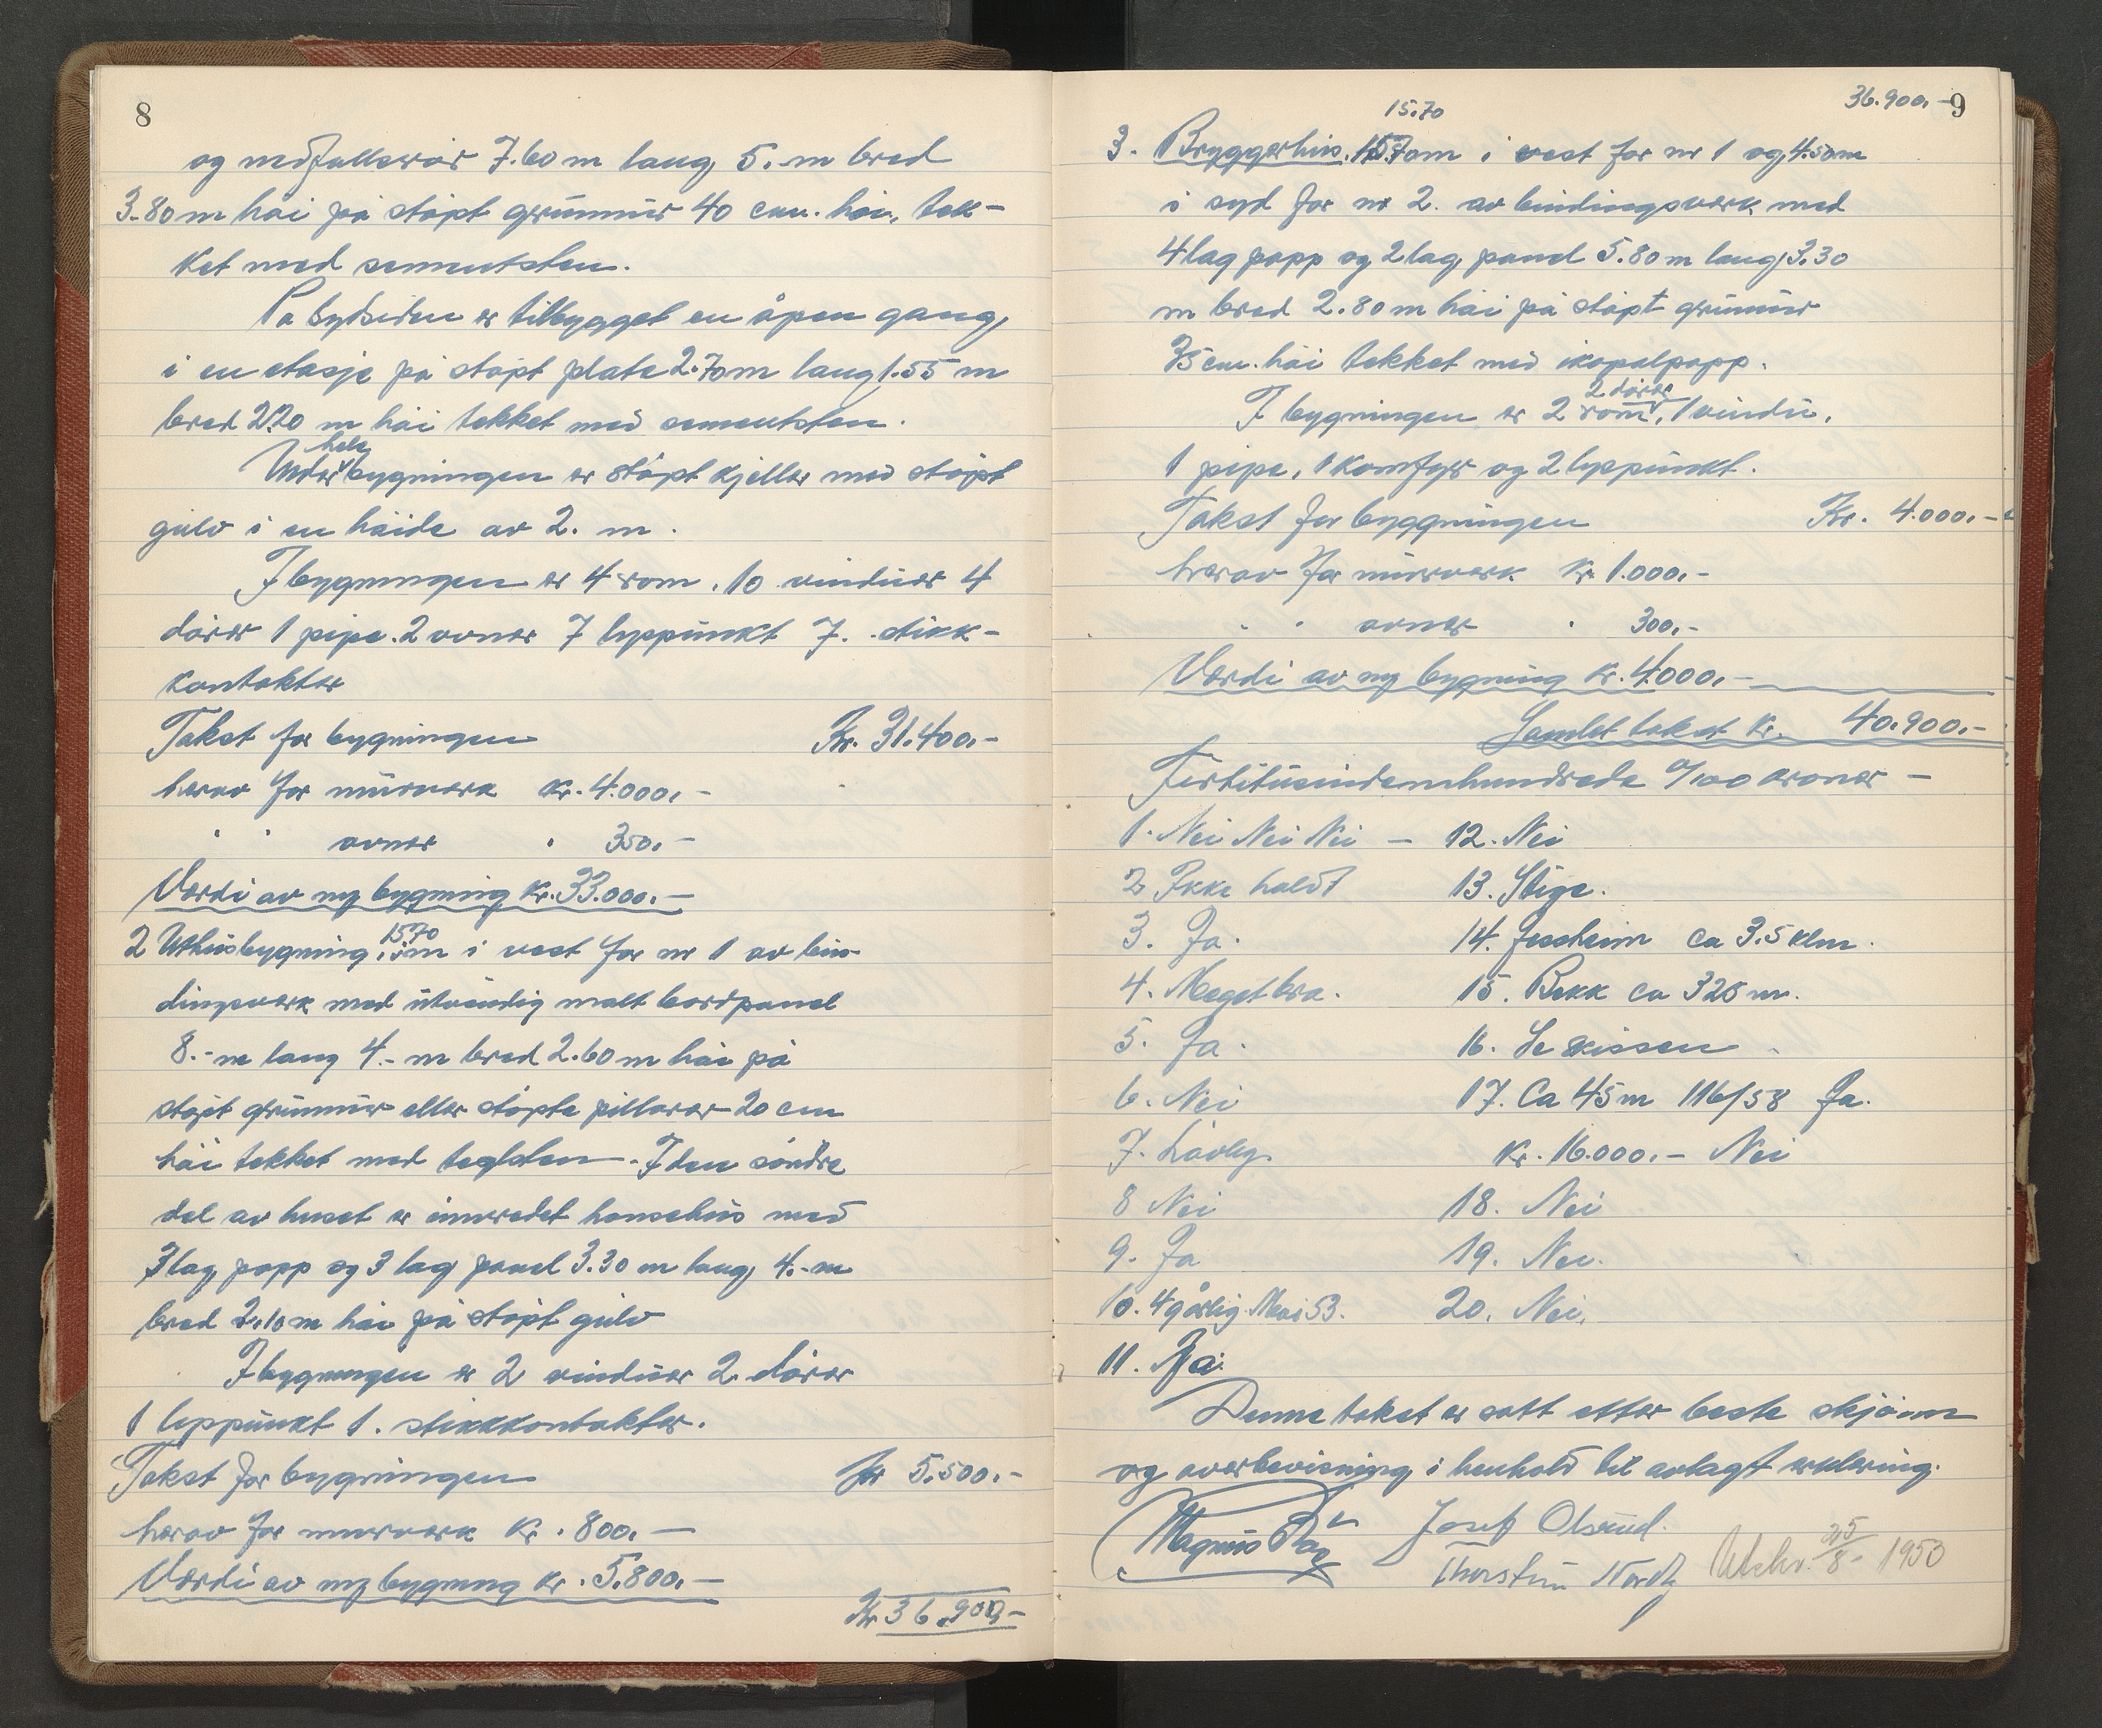 8
og nedfallsrør 7.60 m lang 5.- m bred
3.80 m høi på støpt grunnmur 40 cm. høi, tek-
ket med sementsten.
På Sydsiden er tilbygget en åpen gang
i en etasje på støpt plate 2.70 m lang 1.55 m
bred 2.20 m høi tekket med sementsten.
hele
Under bygningen er støpt kjeller med støpt
gulv i en høide av 2. m.
I bygningen er 4 rom. 10 vinduer 4
dører 1 pipe. 2 ovner 7 lyspunkt 7. stikk-
kontakter
Takst for bygningen Kr. 31.400.-
herav for murverk Kr. 4.000.-
" " ovner " 350.-
Verdi av ny bygning Kr. 33.000.-
1570
2 Uthusbygning. m i vest for nr 1 av bin-
dingsverk med utvendig malt bordpanel
8.- m lang 4.- m bred 2.60 m høi på
støpt grunnmur eller støpte pillarer 20 cm
høi tekket med teglsten. I den søndre
del av huset er innredet hønsehus med
3 lag papp og 3 lag panel 3.30 m lang 4.- m
bred 2.10 m høi på støpt gulv
I bygningen er 2 vinduer 2 dører
1 lyspunkt 1. stikkkontakter.
Takst for bygningen kr 5.500.-
herav for murverk Kr. 800.-
Verdi av ny bygning Kr. 5.800.-
Kr 36.900.-
36.900.- 9
15.70
3. Bryggerhus. 15.70m i vest for nr 1 og 4.50m
i syd for nr 2. av bindingsverk med
4 lag papp og 2 lag panel 5.80 m lang 3.30
m bred 2.80 m høi på støpt grunnmur
35 cm. høi tekket med ikopalpapp.
2 dører
I bygningen er 2 rom, 1 vindu,
1 pipe, 1 komfyr og 2 lyspunkt.
Takst for byggningen Kr. 4.000.-
herav for murverk Kr 1.000.-
" " ovner " 300.-
Verdi av ny bygning Kr. 4.000.-
Samlet takst Kr. 40.900.-
Førtitusindenihundrede 0/100 kroner -
1. Nei Nei Nei - 12. Nei
2 Ikke holdt 13. Stige.
3. Ja. 14. Jessheim ca 3.5 klm.
4. Meget bra. 15. Bekk ca 325 m.
5. Ja. 16. Se skissen
6. Nei 17. Ca 45 m 116/58 Ja.
7. Lovlig. Kr. 16.000.- Nei
8 Nei 18. Nei
9. Ja 19. Nei.
10. 4 gårlig. Mai 53. 20. Nei.
11. Ja.
Denne takst er satt etter beste skjønn
og overbevisning i henhold til avlagt erklæring.
Magnus Dag Josef Olsrud.
Thorstein Nordby Utskr. 25/8- 1953